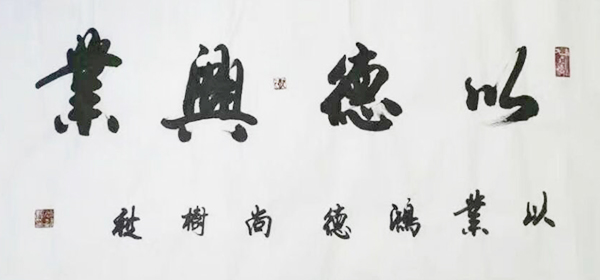 以德興業
以業鴻德尚樹